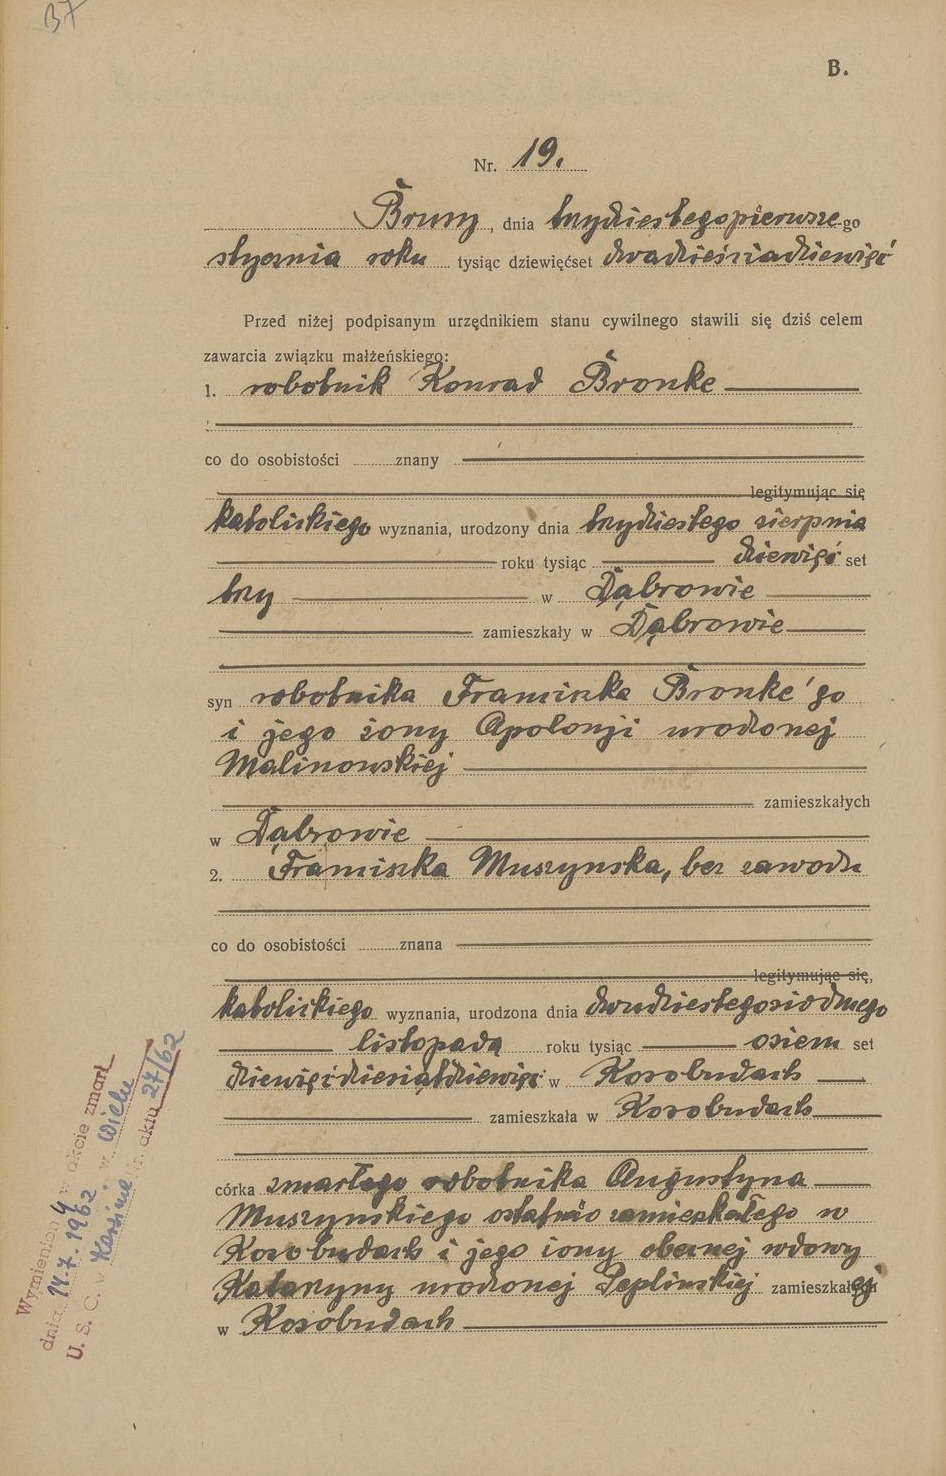 37
B.
Nr. 19.
Brusy, dnia trzydziestegopierwszego
stycznia roku tysiąc dziewięćset dwadzieściadziewięć
Przed niżej podpisanym urzędnikiem stanu cywilnego stawili się dziś celem
zawarcia związku małżeńskiego:
1. robotnik Konrad Bronke
co do osobistości znany
legitymując się
katolickiego wyznania, urodzony dnia trzydziestego sierpnia
roku tysiąc dziewięć set
trzy w Dąbrowie
zamieszkały w Dąbrowie
syn robotnika Franciszka Bronke'go
i jego żony Apolonji urodzonej
Malinowskiej
zamieszkałych
w Dąbrowie
2. Franciszka Muszynska, bez zawodu
co do osobistości znana
legitymując się,
katolickiego wyznania, urodzona dnia dwudziestegosiodmego
listopada roku tysiąc osiem set
dziewięćdziesiątdziewięć w Kosobudach
zamieszkała w Kosobudach
córka zmarłego robotnika Augustyna
Muszynskiego ostatnio zamieszkałego w
Kosobudach i jego żony obecnej wdowy
Katarzyny urodzonej Peplinskiej zamieszkałej
w Kosobudach
Wymieniona w akcie zmarł
dnia 14.7.1962 w Wielu
U. S. C. Karsin Nr. aktu 27/62